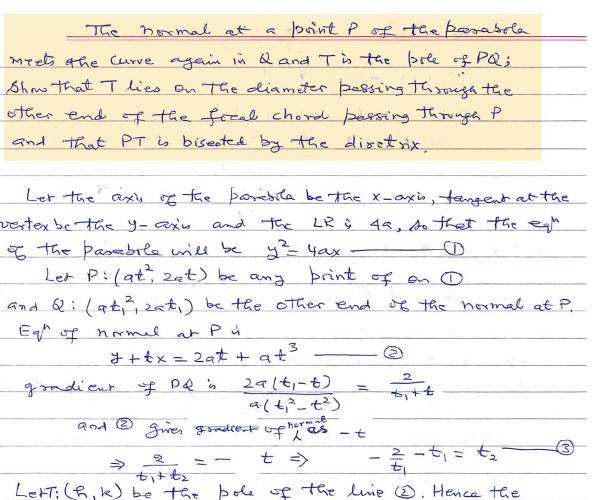 The normal at a point P of the parabola
meets the curve again in Q and T is the pole of PQ;
Show that T lies on The diameter passing through the
other end of the focal chord passing through P
and that PT is bisected by the directrix.
Let the axis of the parabola be the x-axis, tangent at the
vertex be the y-axis and the LR is 4a, so that the eqⁿ
of the parabola will be y² = 4ax ——— ①
Let P: (at², 2at) be any point of on ①
and Q: (at₁², 2at₁) be the other end of the normal at P.
Eqⁿ of normal at P is
y + tx = 2at + at³ ——— ②
gradient of PQ is 2a(t₁-t) / a(t₁²-t²) = 2 / t₁+t
and ② gives gradient of normal as -t
⇒ 2 / t₁+t₂ = - t ⇒ - 2/t₁ - t₁ = t₂ ——— ③
Let T: (h, k) be the pole of the line ②. Hence the